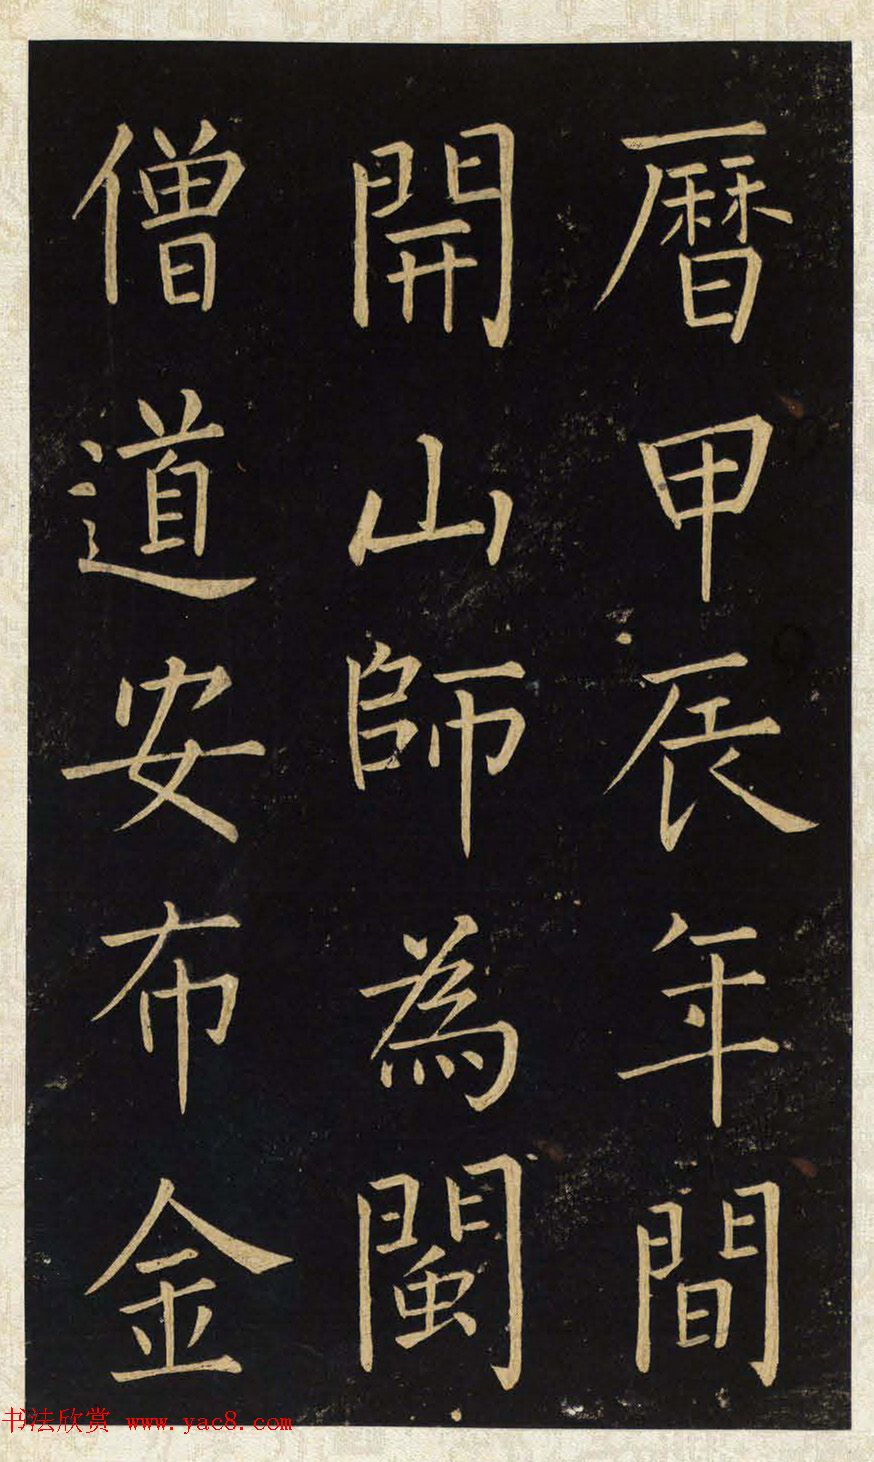 曆甲辰年間
開山師為閩
僧道安布金
书法欣赏 www.yac8.com